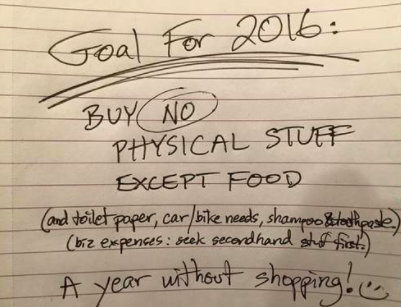 Goal For 2016:
BUY NO
PHYSICAL STUFF
EXCEPT FOOD
(and toilet paper, car/bike needs, shampoo & toothpaste)
(biz expenses: seek secondhand stuf first.)
A year without shopping!